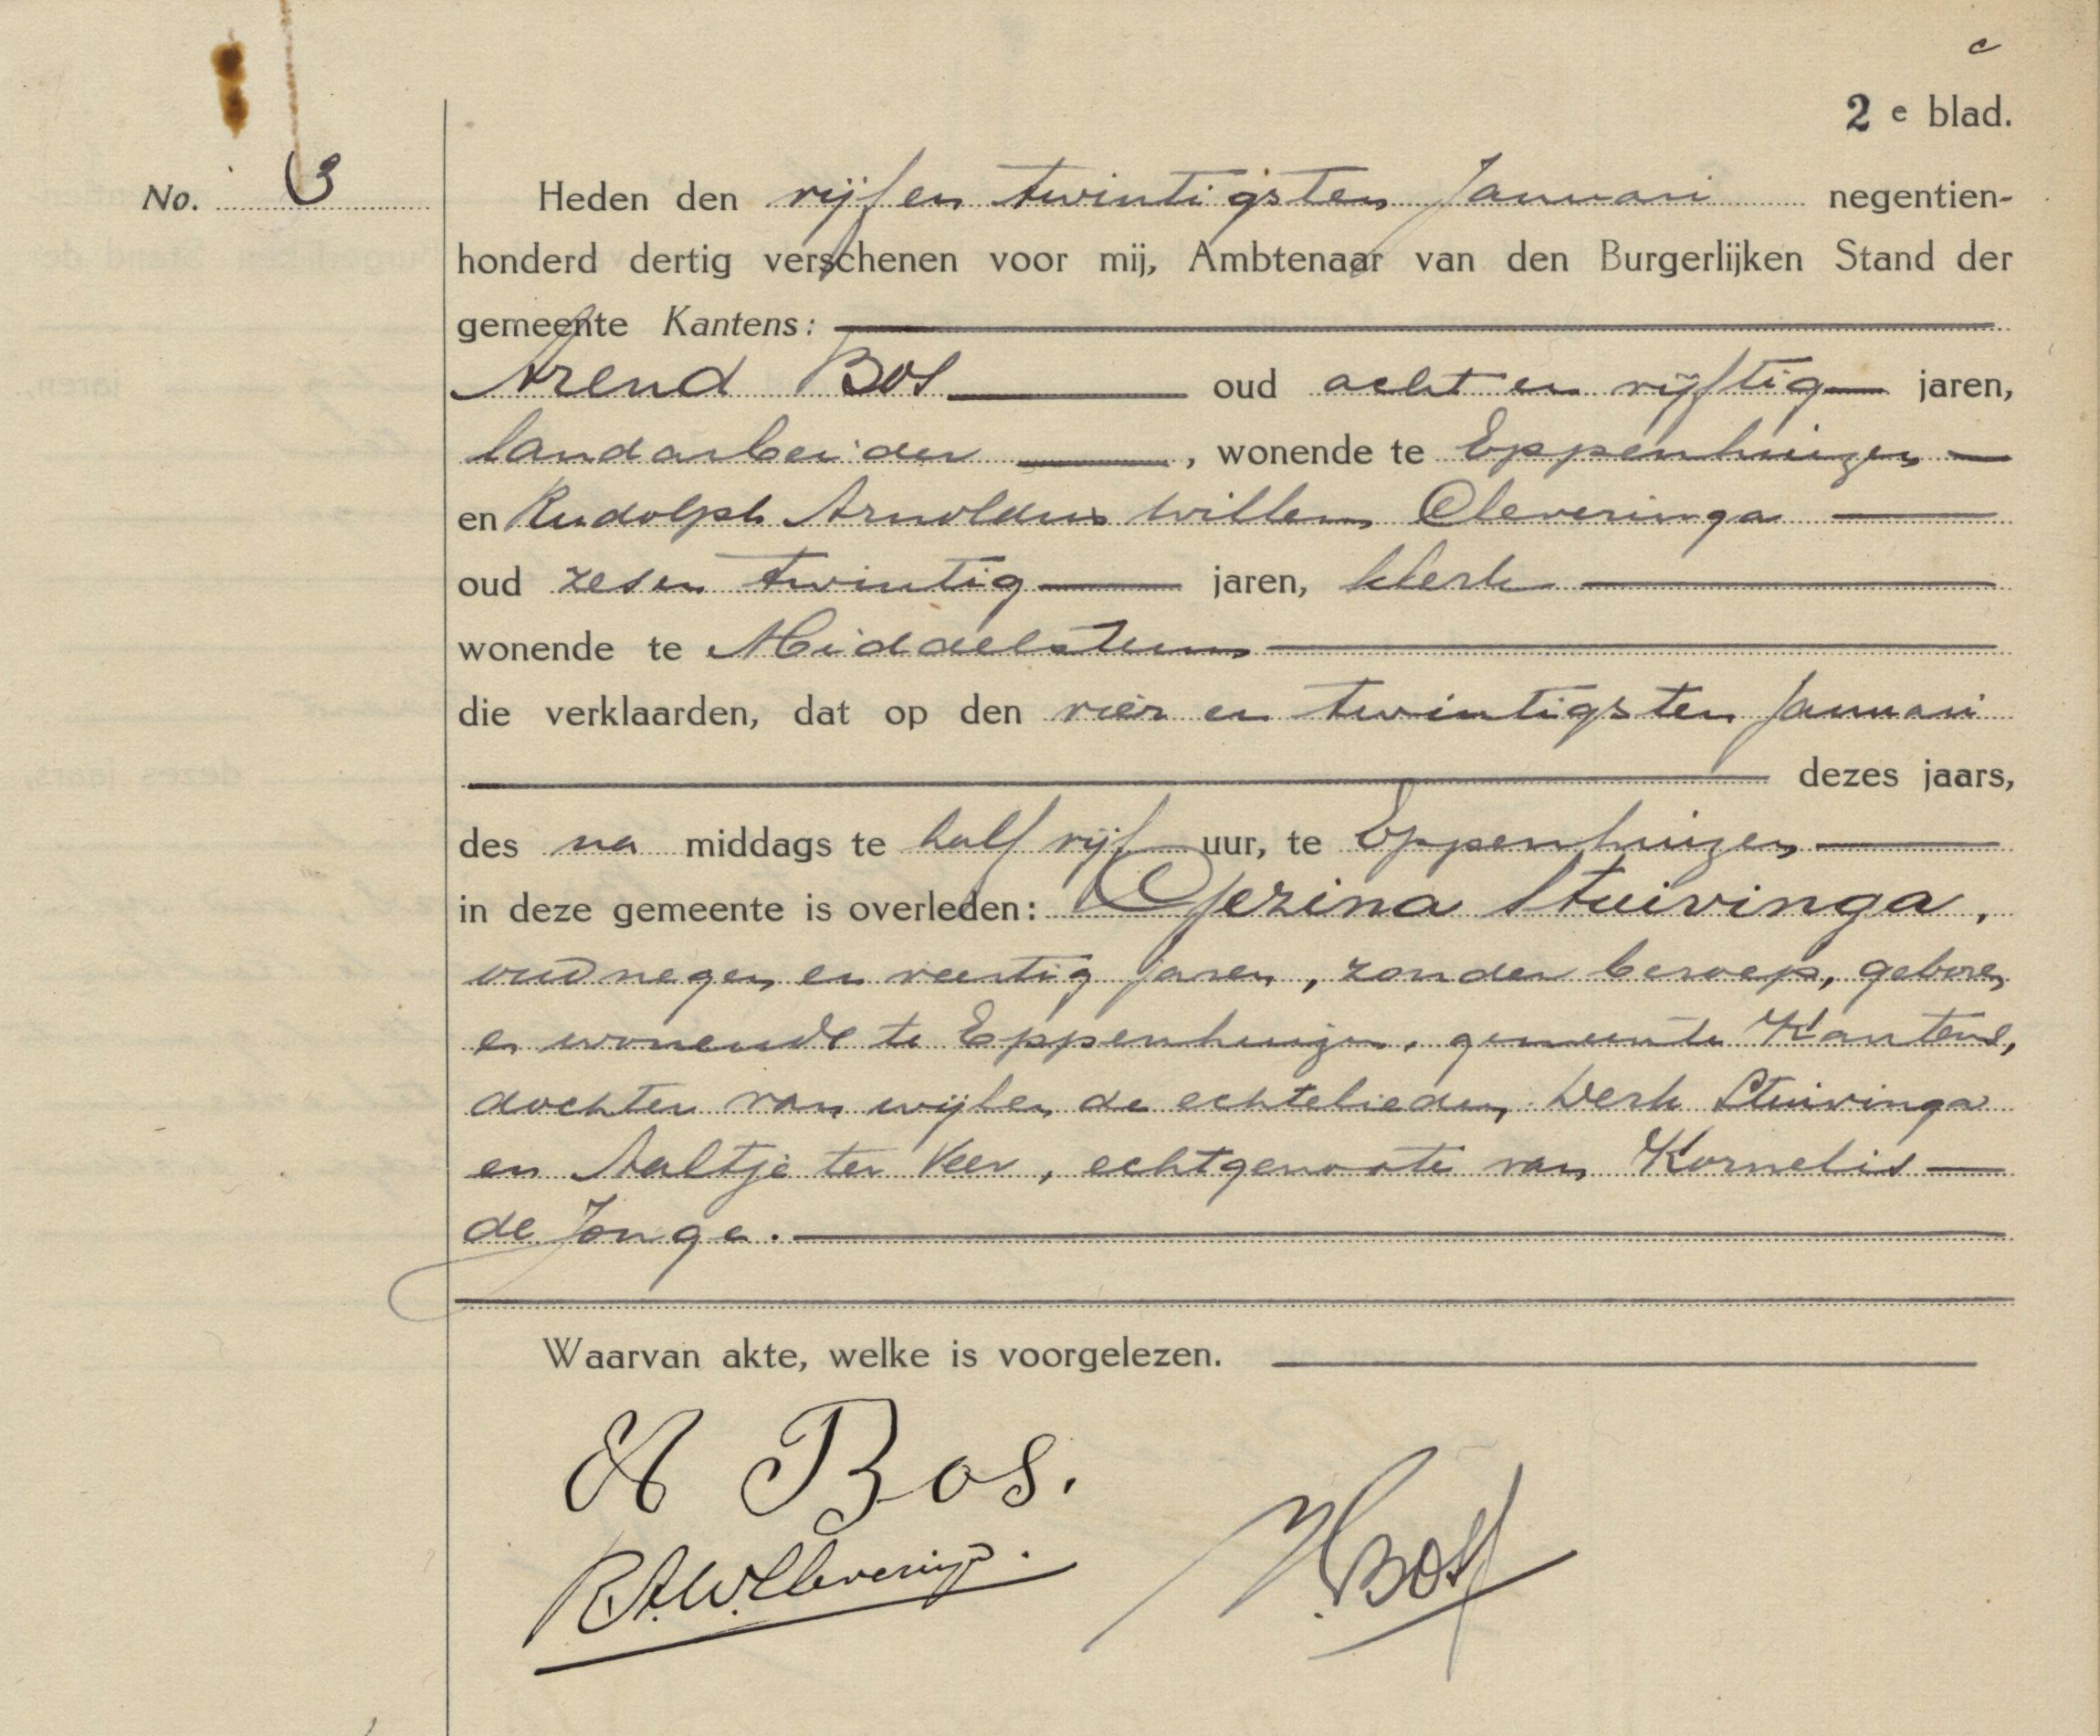 c
2 e blad.
No. 3
Heden den vijf en twintigsten Januari negentien-
honderd dertig verschenen voor mij, Ambtenaar van den Burgerlijken Stand der
gemeente Kantens:
Arend Bos oud acht en vijftig jaren,
landarbeider , wonende te Eppenhuizen
en Rudolph Arnoldus Willem Cleveringa
oud zes en twintig jaren, klerk
wonende te Middelstum
die verklaarden, dat op den vier en twintigsten Januari
dezes jaars,
des na middags te half vijf uur, te Eppenhuizen
in deze gemeente is overleden: Gezina Stuivinga,
oud negen en veertig jaren, zonder beroep, geboren
en wonende te Eppenhuizen, gemeente Kantens,
dochter van wijlen de echtelieden Derk Stuivinga
en Aaltje ter Veer, echtgenoote van Kornelis
de Jonge.
Waarvan akte, welke is voorgelezen.
A Bos.
R.A.W. Cleveringa.
Bos